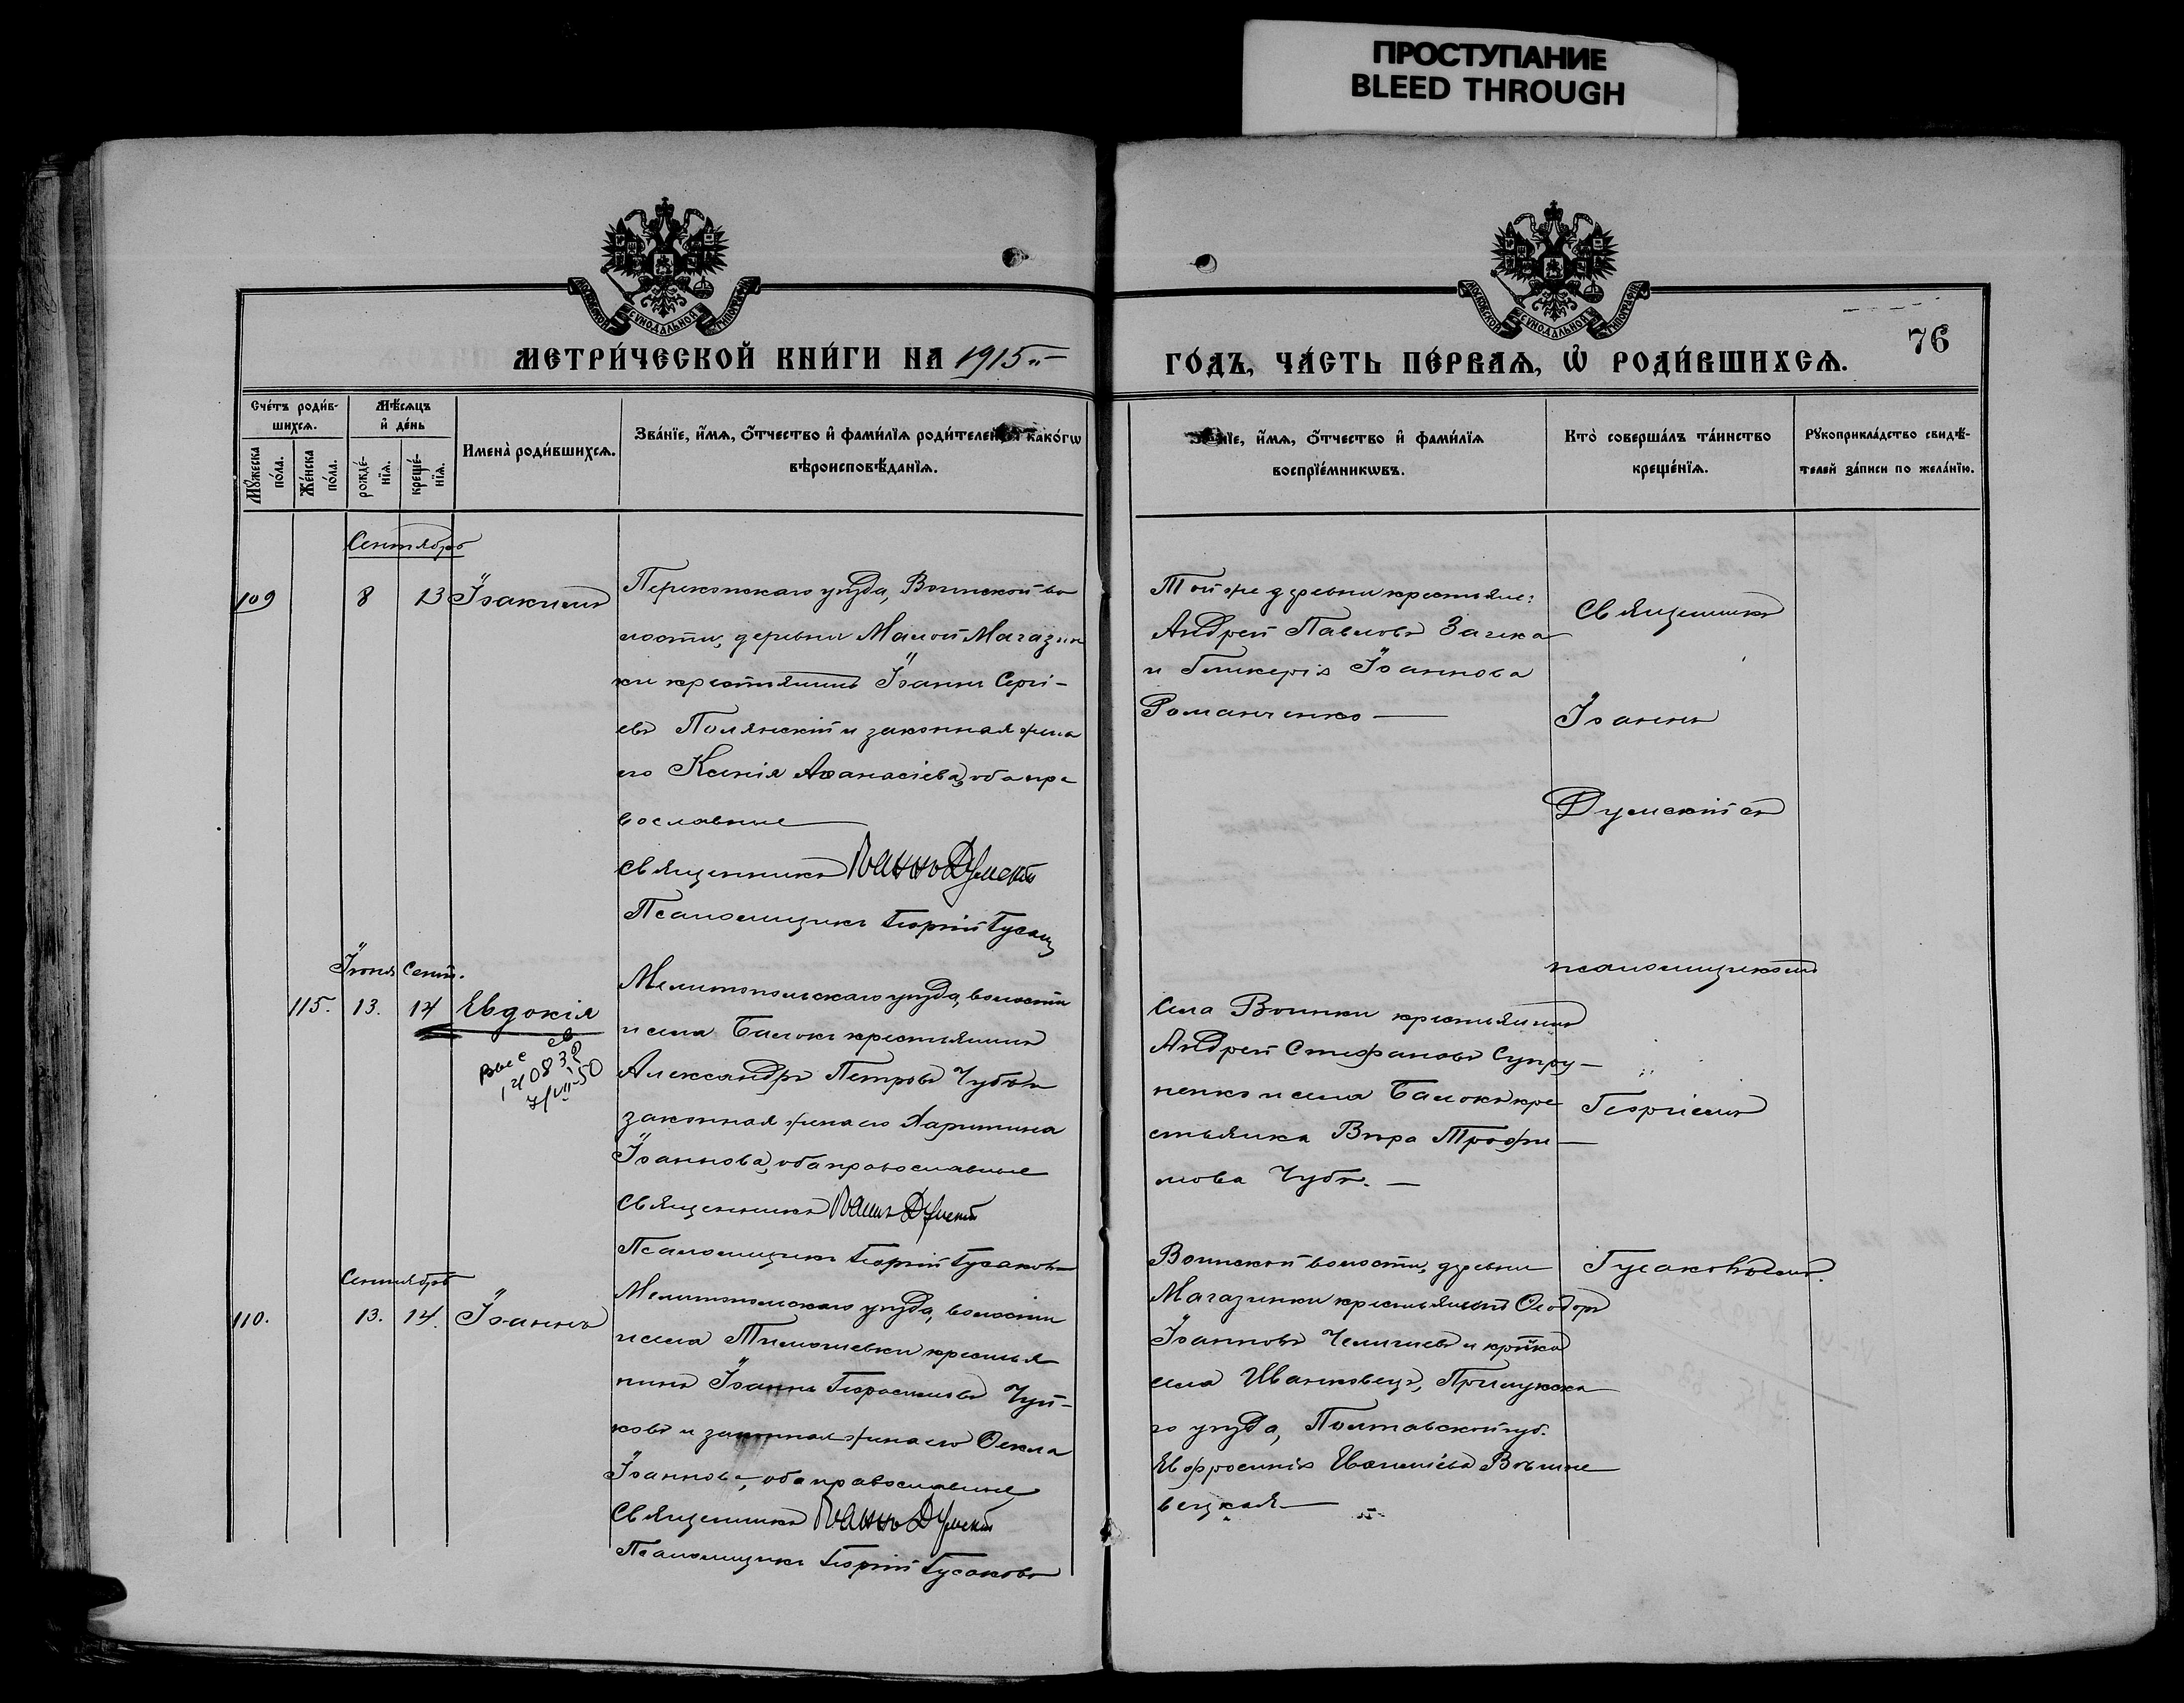 ПРОСТУПАНИЕ
BLEED THROUGH
МОСКОВСКОЙ СѴНОДАЛЬНОЙ ТИПОГРАФІИ
МОСКОВСКОЙ СѴНОДАЛЬНОЙ ТИПОГРАФІИ
МЕТРИ́ЧЕСКОЙ КНИ́ГИ НА 1915
ГО́ДЪ, ЧА́СТЬ ПЕ́РВАѦ, Ѡ҆ РОДИ́ВШИХСѦ.
76
Сче́тъ роди́в-
шихсѧ.
Мѣ́сѧцъ
и҆ де́нь
Мꙋ́жеска
по́ла.
Же́нска
по́ла.
рожде́-
нїѧ.
креще́-
нїѧ.
Имена̀ роди́вшихсѧ.
Зва́нїе, и҆́мѧ, ѻ҆́тчество и҆ фами́лїѧ роди́телей како́гѡ
вѣроисповѣ́данїѧ.
и҆́мѧ, ѻ҆́тчество и҆ фами́лїѧ
воспрїе́мникѡвъ.
Кто̀ соверша́лъ та́инство
креще́нїѧ.
Рꙋкоприкла́дство свидѣ́-
телей за́писи по жела́нїю.
Сентябрь
109 8 13 Іоакимъ
Перекопскаго уѣзда, Воинской во
лости, деревни Малой Магазин
ки крестьянинъ Іоаннъ Сергі-
евъ Полянскій и законная жена
его Ксенія Аѳанасіева, оба пра
вославные
Священникъ Іоаннъ Думскій
Псаломщикъ Георгій Гусаковъ
Той же деревни крестьяне:
Андрей Павловъ Заика
и Гликерія Іоаннова
Романченко —
Священникъ
Іоаннъ
Думскій съ
псаломщикомъ
Георгіемъ
Гусаковымъ.
Іюня Сент.
115. 13. 14 Евдокія
Выс св
140832
7/VII-50
Мелитопольскаго уѣзда, волости
и села Балокъ крестьянинъ
Александръ Петровъ Чубъ и
законная жена его Харитина
Іоаннова, оба православные
Священникъ Іоаннъ Думскій
Псаломщикъ Георгій Гусаковъ
Села Воинки крестьянинъ
Андрей Стефановъ Супру-
ненко и села Балокъ кре
стьянка Вѣра Трофи-
мова Чубъ. —
Сентябрь
110. 13. 14. Іоаннъ
Мелитопольскаго уѣзда, волости
и села Тимошевки крестья
нинъ Іоаннъ Герасимовъ Чуй-
ковъ и законная жена его Ѳекла
Іоаннова, оба православные
Священникъ Іоаннъ Думскій
Псаломщикъ Георгій Гусаковъ
Воинской волости, деревни
Магазинки крестьянинъ Ѳеодоръ
Іоанновъ и кр-ка
села Иванковецъ, Прилукска
го уѣзда, Полтавской губ.
Евфросинія
вецкая —